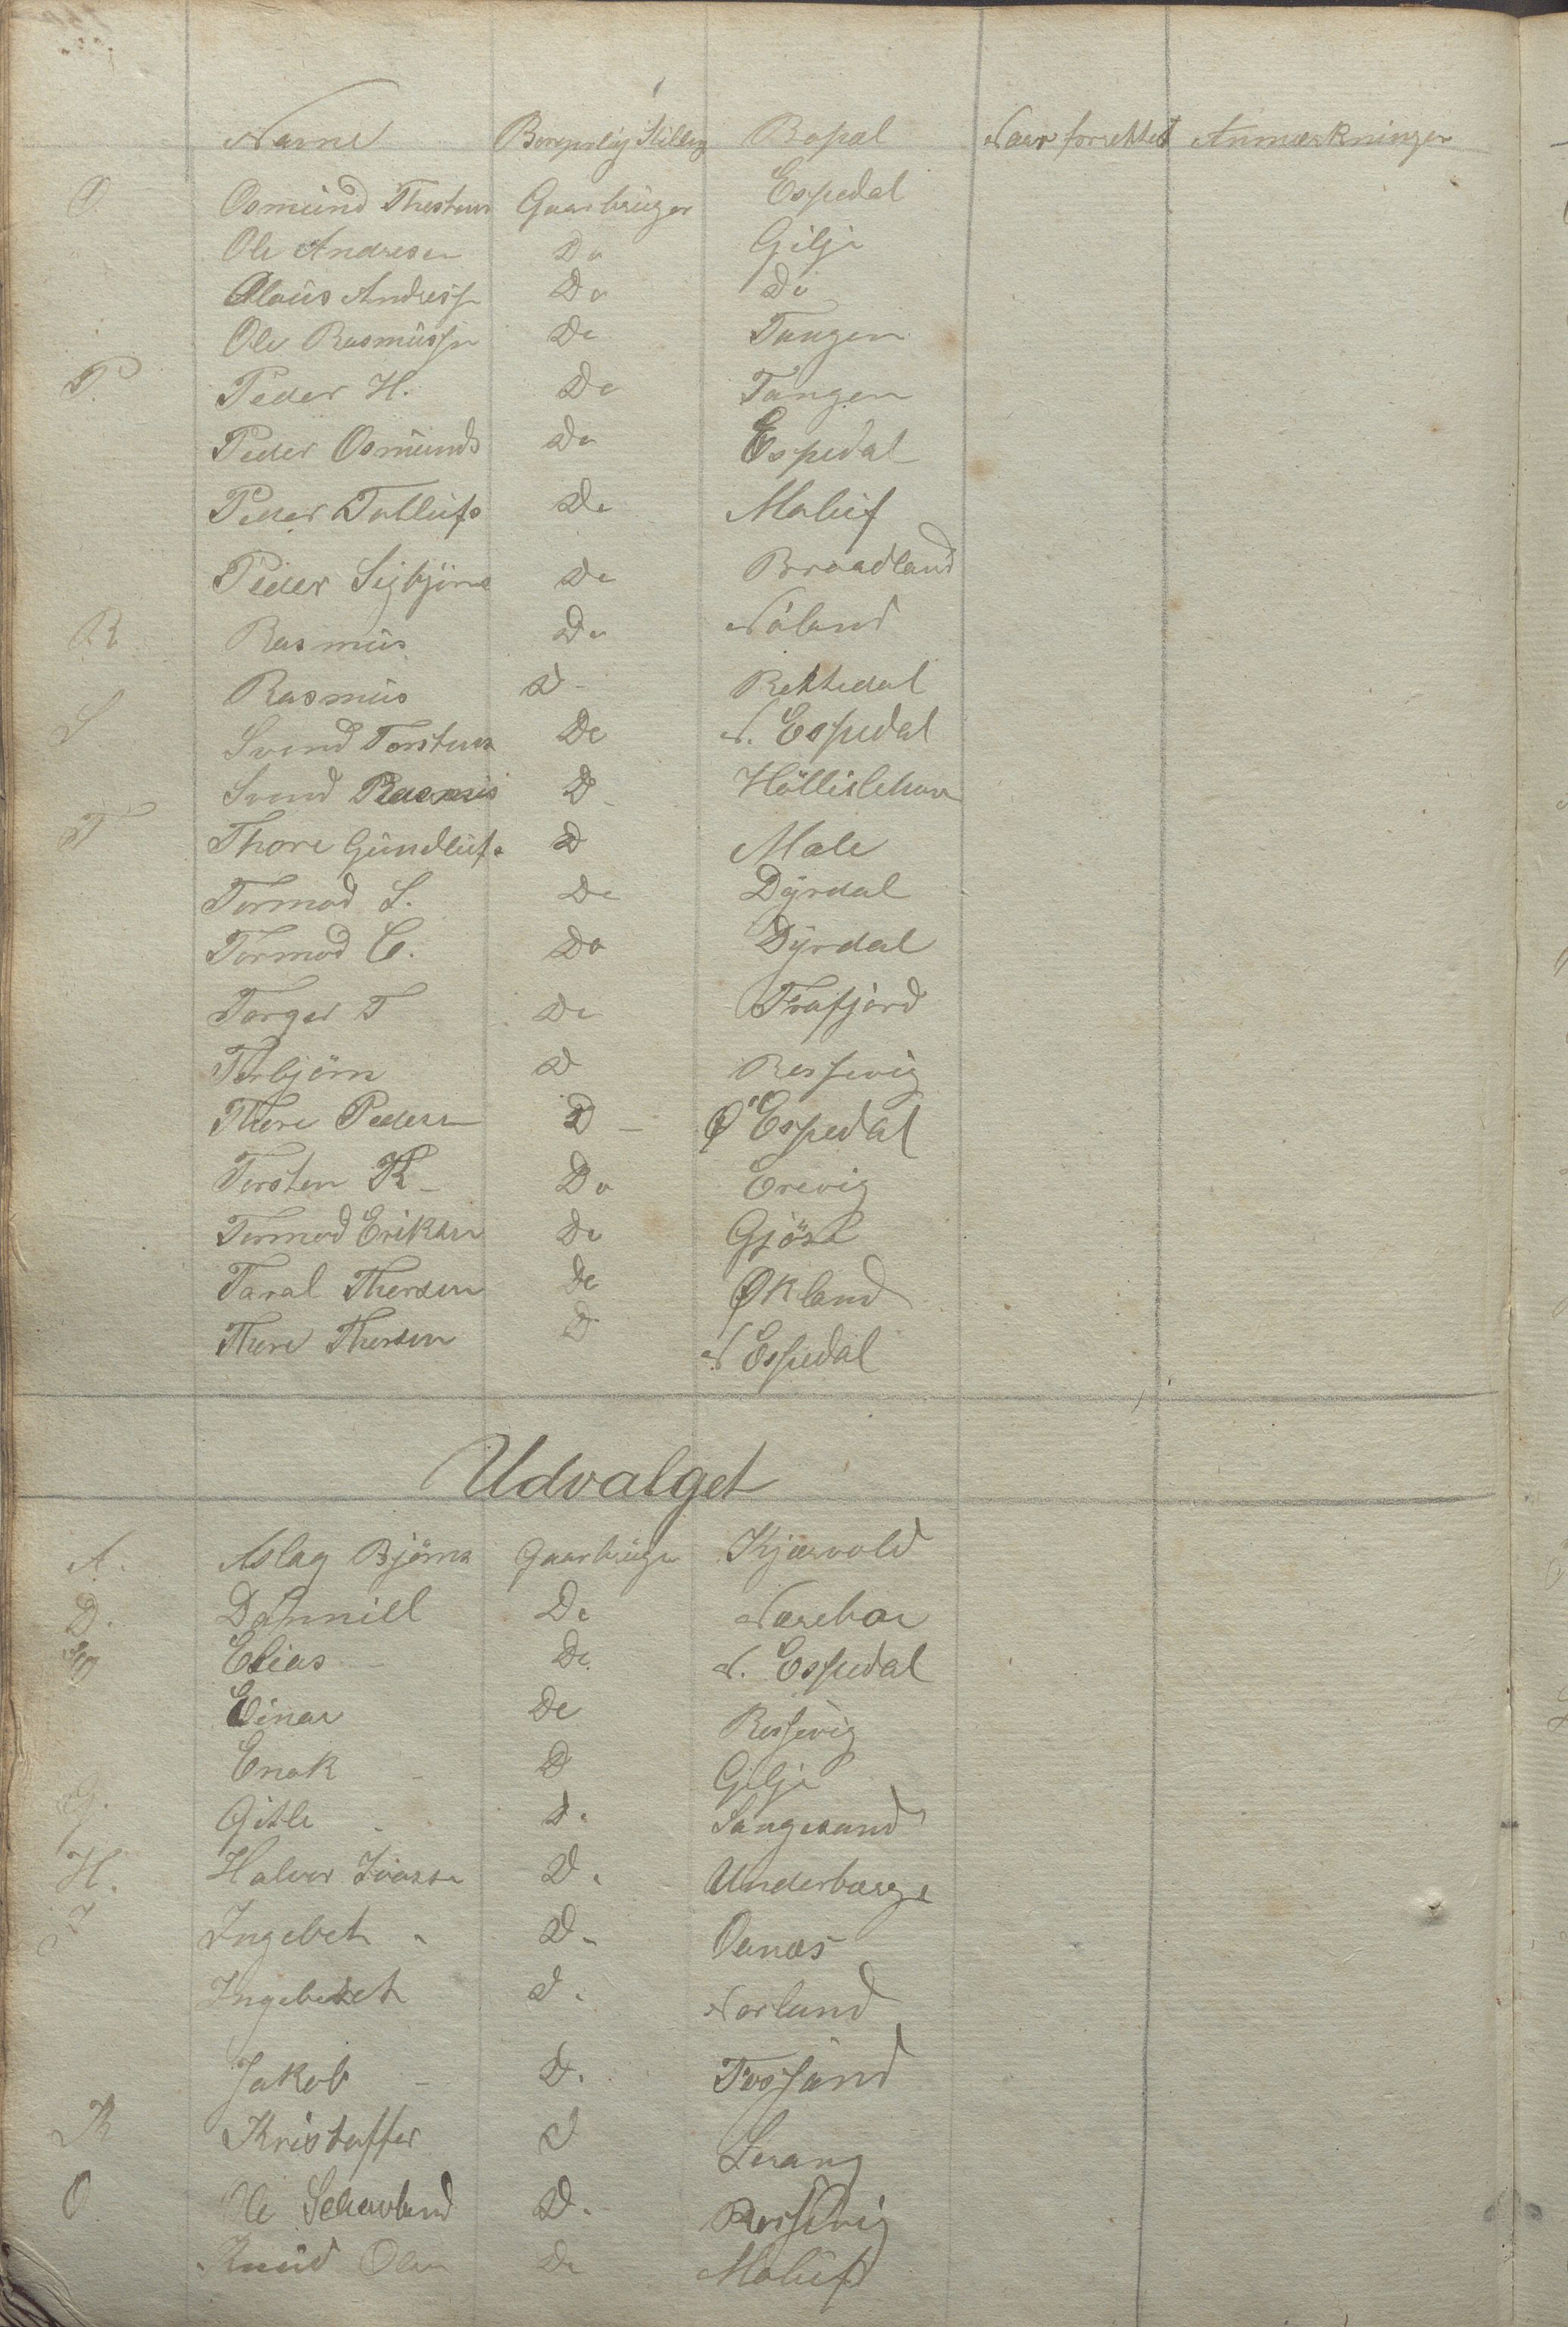 Navne Borgerlig Stilling Bopæl Naar forrettet Anmærkninger
O Osmund Thorsten Gaarbrüger Espedal
Ole Andresen Do Gilje
Olaüs Andress Do Do
Ole Rasmüssn Do Tangen
P. Peder H. Do Tangen
Peder Osmunds Do Espedal
Peder Tollüfs Do Maluf
Peder Sigbjörns Do Braadland
R Rasmüs Do Nåland
Rasmüs D- Rettedal
S Svend Torstens Do N. Espedal
Svend Rasmüs D- Höllislihaa
T Thore Gündlüfs D Male
Tormod S. Do Dÿrdal
Tormod C. Do Dÿrdal
Torger T Do Frafjord
Torbjörn D Ressevig
Thore Pedersn D - Ø Espedal
Torsten K- Do Erevig
Tormod Eriksen Do Gjöse
Taral Thorsen Do Økland
Thore Thorsen D N Espedal
Udvalget
A. Aslag Björns Gaarbrüger Kjærvold
D. Dahniel Do Nærebøe
E Elias - Do N. Espedal
Einar Do Ressevig
Enok - D Gilje
G. Gitle - D. Sangesand
H. Halvor Ivarsn D. Underbærge
I Ingebet - D. Oanæs
Ingebret D. Norland
Jakob - D. Fossand
K Kristoffer D Lerang
O Ole Schavland D. Ressevig
Knüd Olsn Do Malüf